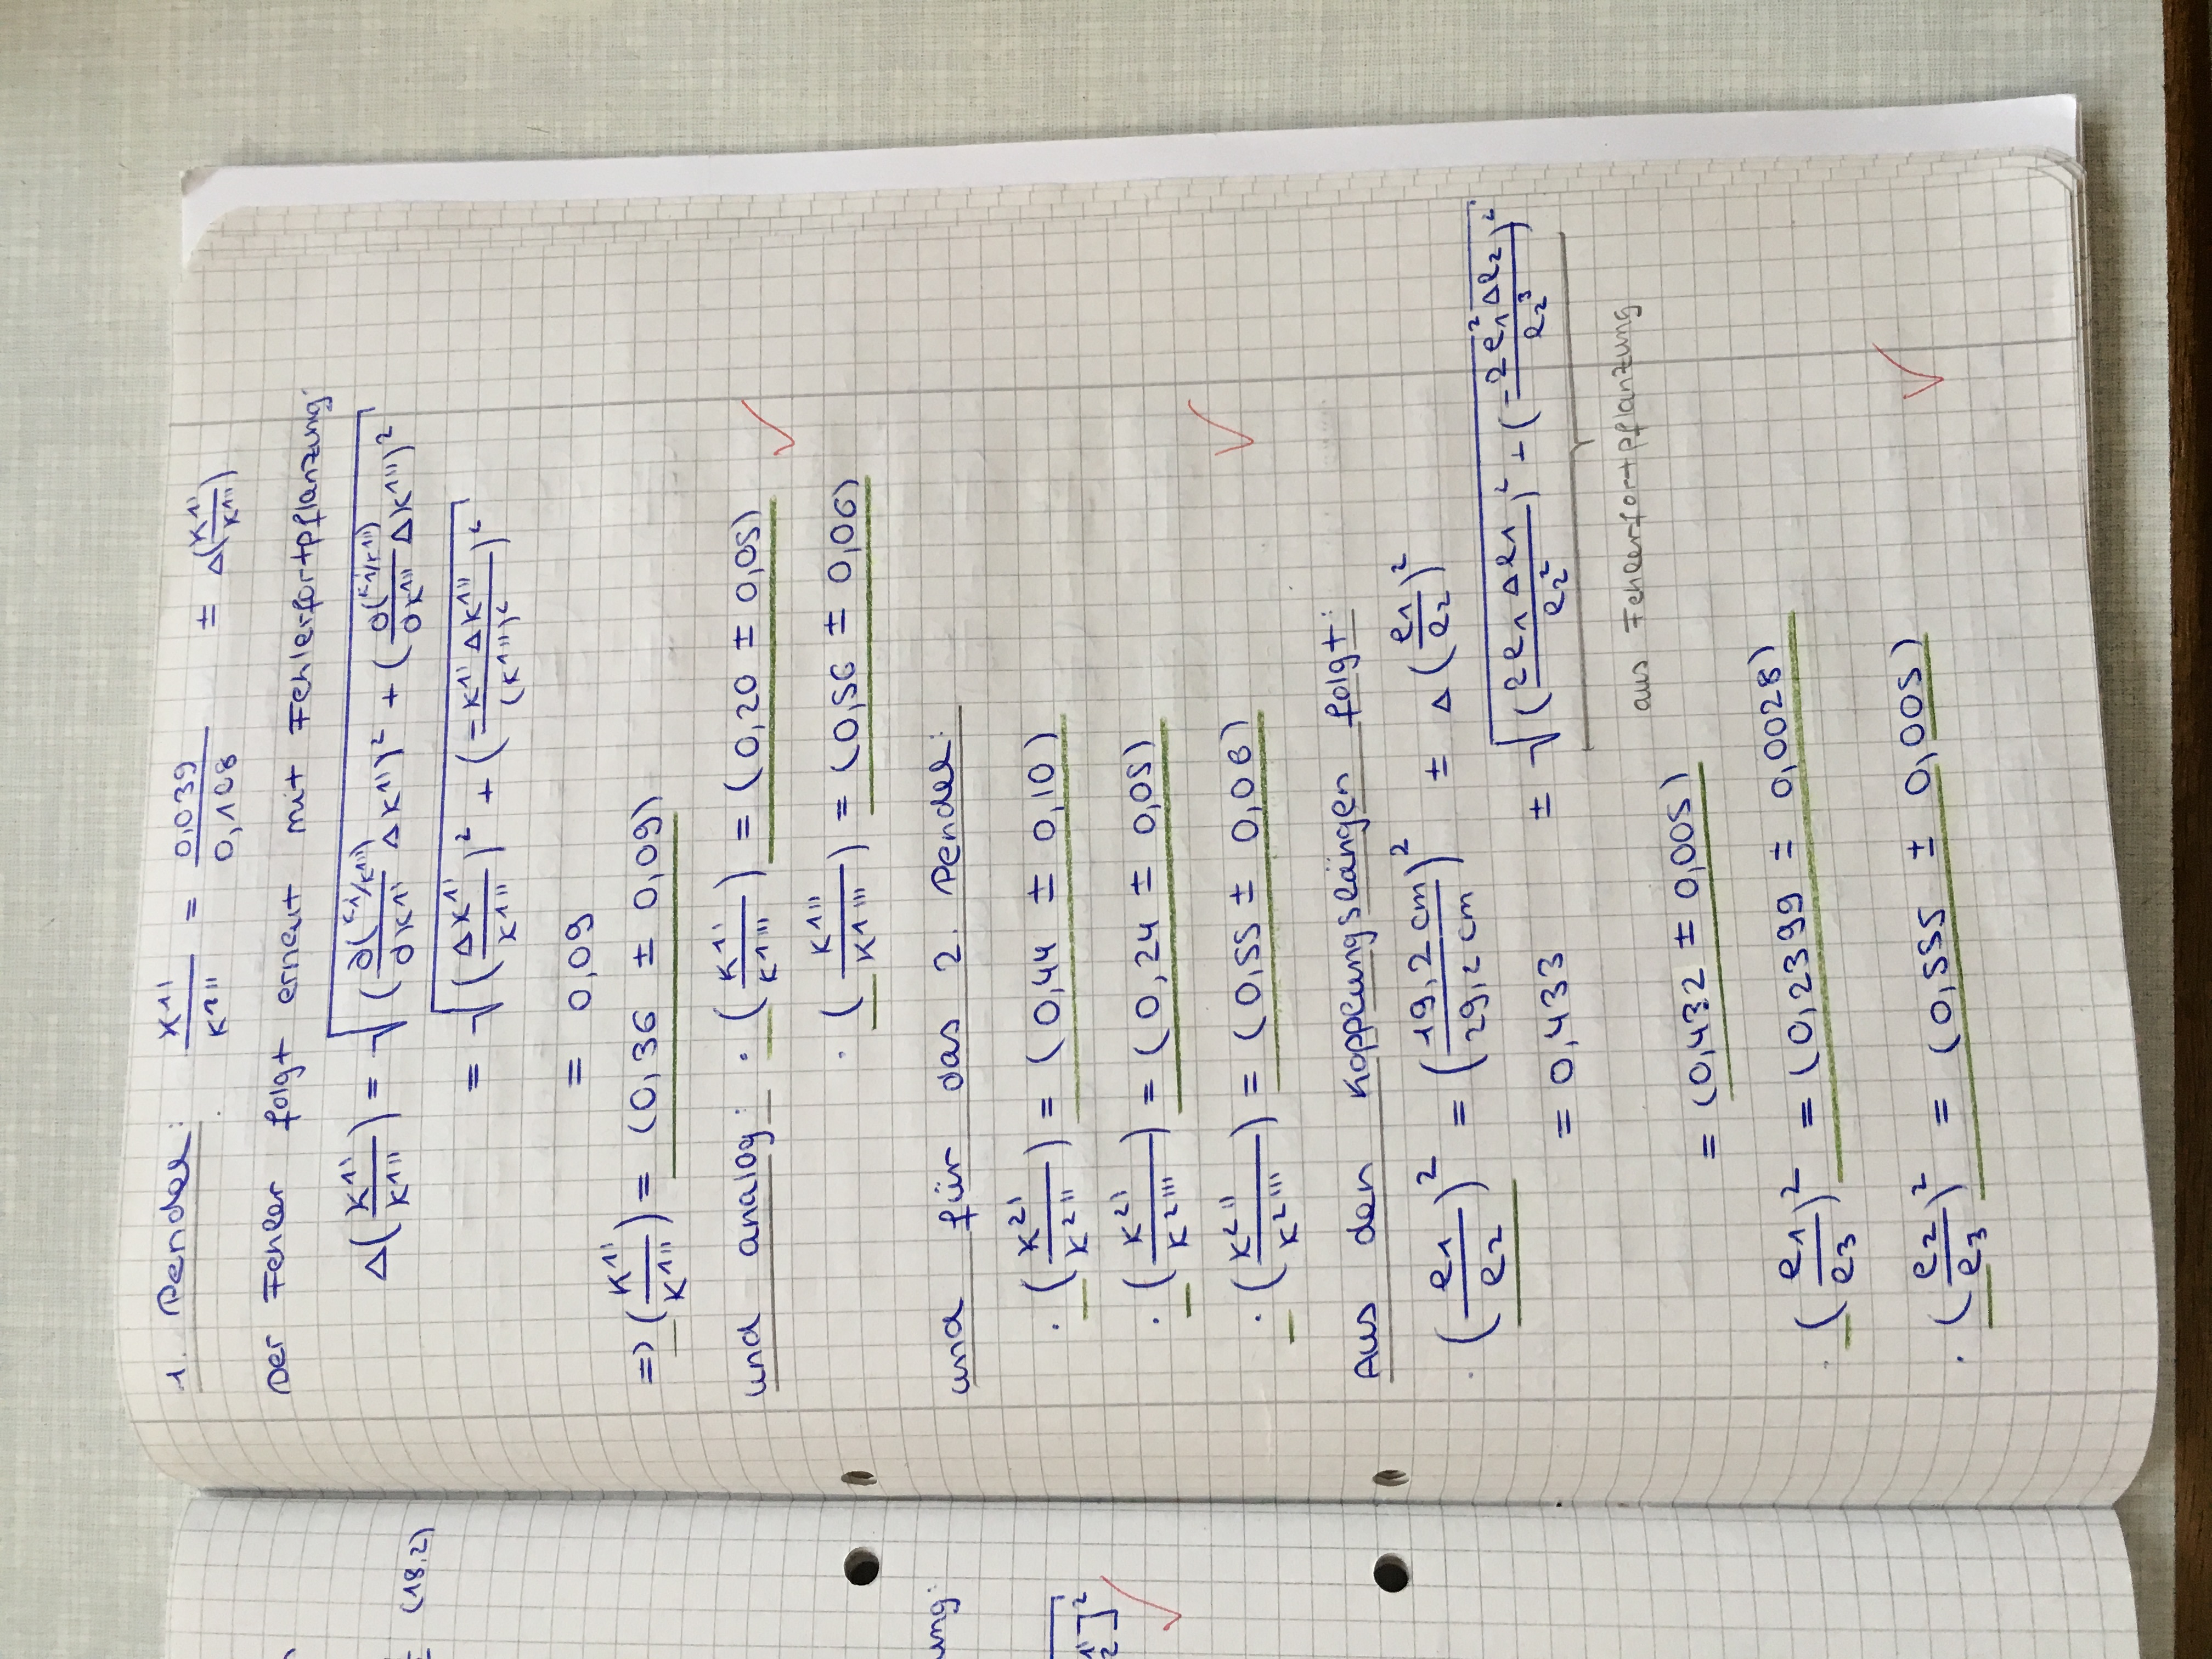 1. Pendel: K1' / K2'' = 0,039 / 0,108 ± Δ(K1' / K1'')
Der Fehler folgt erneut mit Fehlerfortpflanzung:
Δ(K1' / K1'') = √((∂(K1'/K1'') / ∂K1' ΔK1')² + (∂(K1'/K1'') / ∂K1'' ΔK1'')²)
= √((ΔK1' / K1'')² + (-K1' ΔK1'' / (K1'')²)²)
= 0,09
=> (K1' / K1'') = (0,36 ± 0,09)
und analog: · (K1' / K1''') = (0,20 ± 0,05) ✓
· (K1'' / K1''') = (0,56 ± 0,06)
und für das 2. Pendel:
· (K2' / K2'') = (0,44 ± 0,10)
· (K2' / K2''') = (0,24 ± 0,05)
· (K2'' / K2''') = (0,55 ± 0,06) ✓
Aus den Kopplungslängen folgt:
· (l1 / l2)² = (19,2 cm / 29,2 cm)² ± Δ(l1 / l2)²
= 0,433 ± √((2l1 Δl1 / l2²)² + (-2l1² Δl2 / l2³)²)
aus Fehlerfortpflanzung
= (0,432 ± 0,005)
· (l1 / l3)² = (0,2399 ± 0,0028)
· (l2 / l3)² = (0,555 ± 0,005) ✓
± (18,2)
ung:
]² ✓